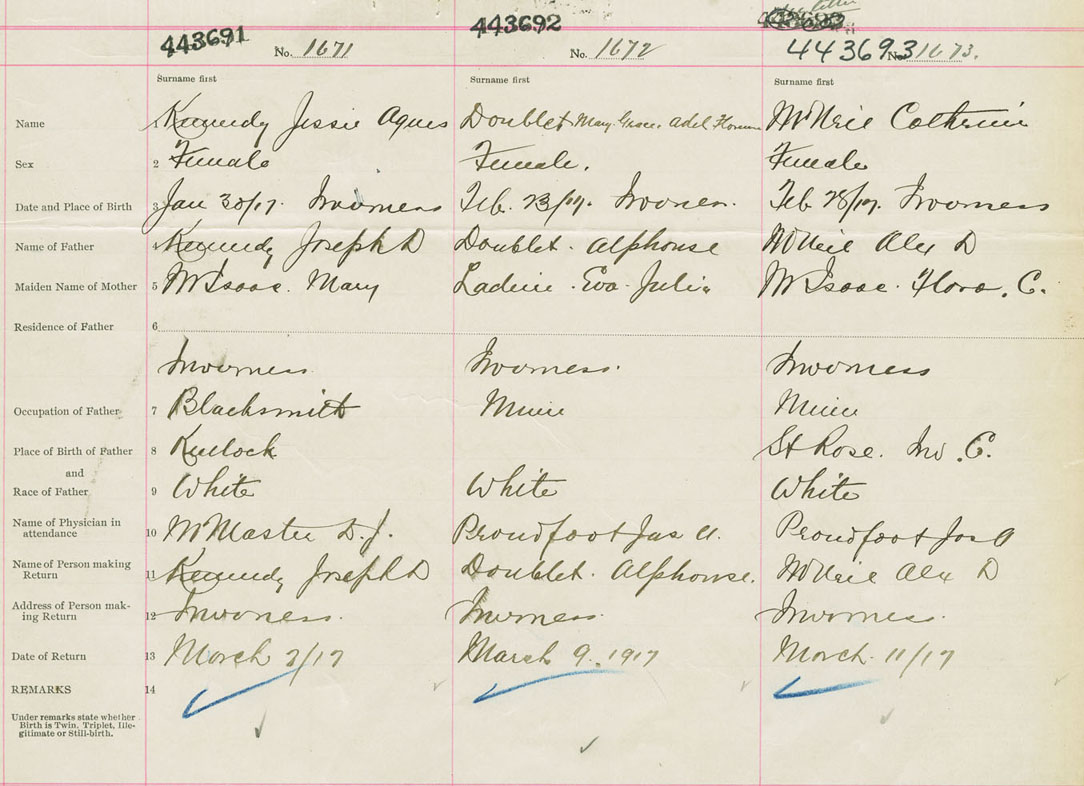 443691 No. 1671 443692 No. 1672 443693 No. 1673.
Surname first Surname first Surname first
Name 1 Kennedy Jessie Agnes Doublet Mary Grace Adel Florence McNeil Catherine
Sex 2 Female Female. Female
Date and Place of Birth 3 Jan 30/17. Inverness Feb. 23/17. Inverness. Feb 28/17. Inverness
Name of Father 4 Kennedy Joseph D Doublet. Alphonse McNeil Alex D
Maiden Name of Mother 5 McIsaac. Mary Eva Julia McIsaac. Flora. C.
Residence of Father 6
Inverness Inverness. Inverness
Occupation of Father 7 Blacksmith Miner Miner
Place of Birth of Father 8 St Rose. Inv. C.
and
Race of Father 9 White White White
Name of Physician in
attendance 10 McMaster D. J. Proudfoot Jas A. Proudfoot Jas A
Name of Person making
Return 11 Kennedy Joseph D Doublet. Alphonse. McNeil Alex D
Address of Person mak-
ing Return 12 Inverness. Inverness. Inverness.
Date of Return 13 March 2/17 March 9. 1917 March. 11/17
REMARKS 14
Under remarks state whether
Birth is Twin, Triplet, Ille-
gitimate or Still-birth.